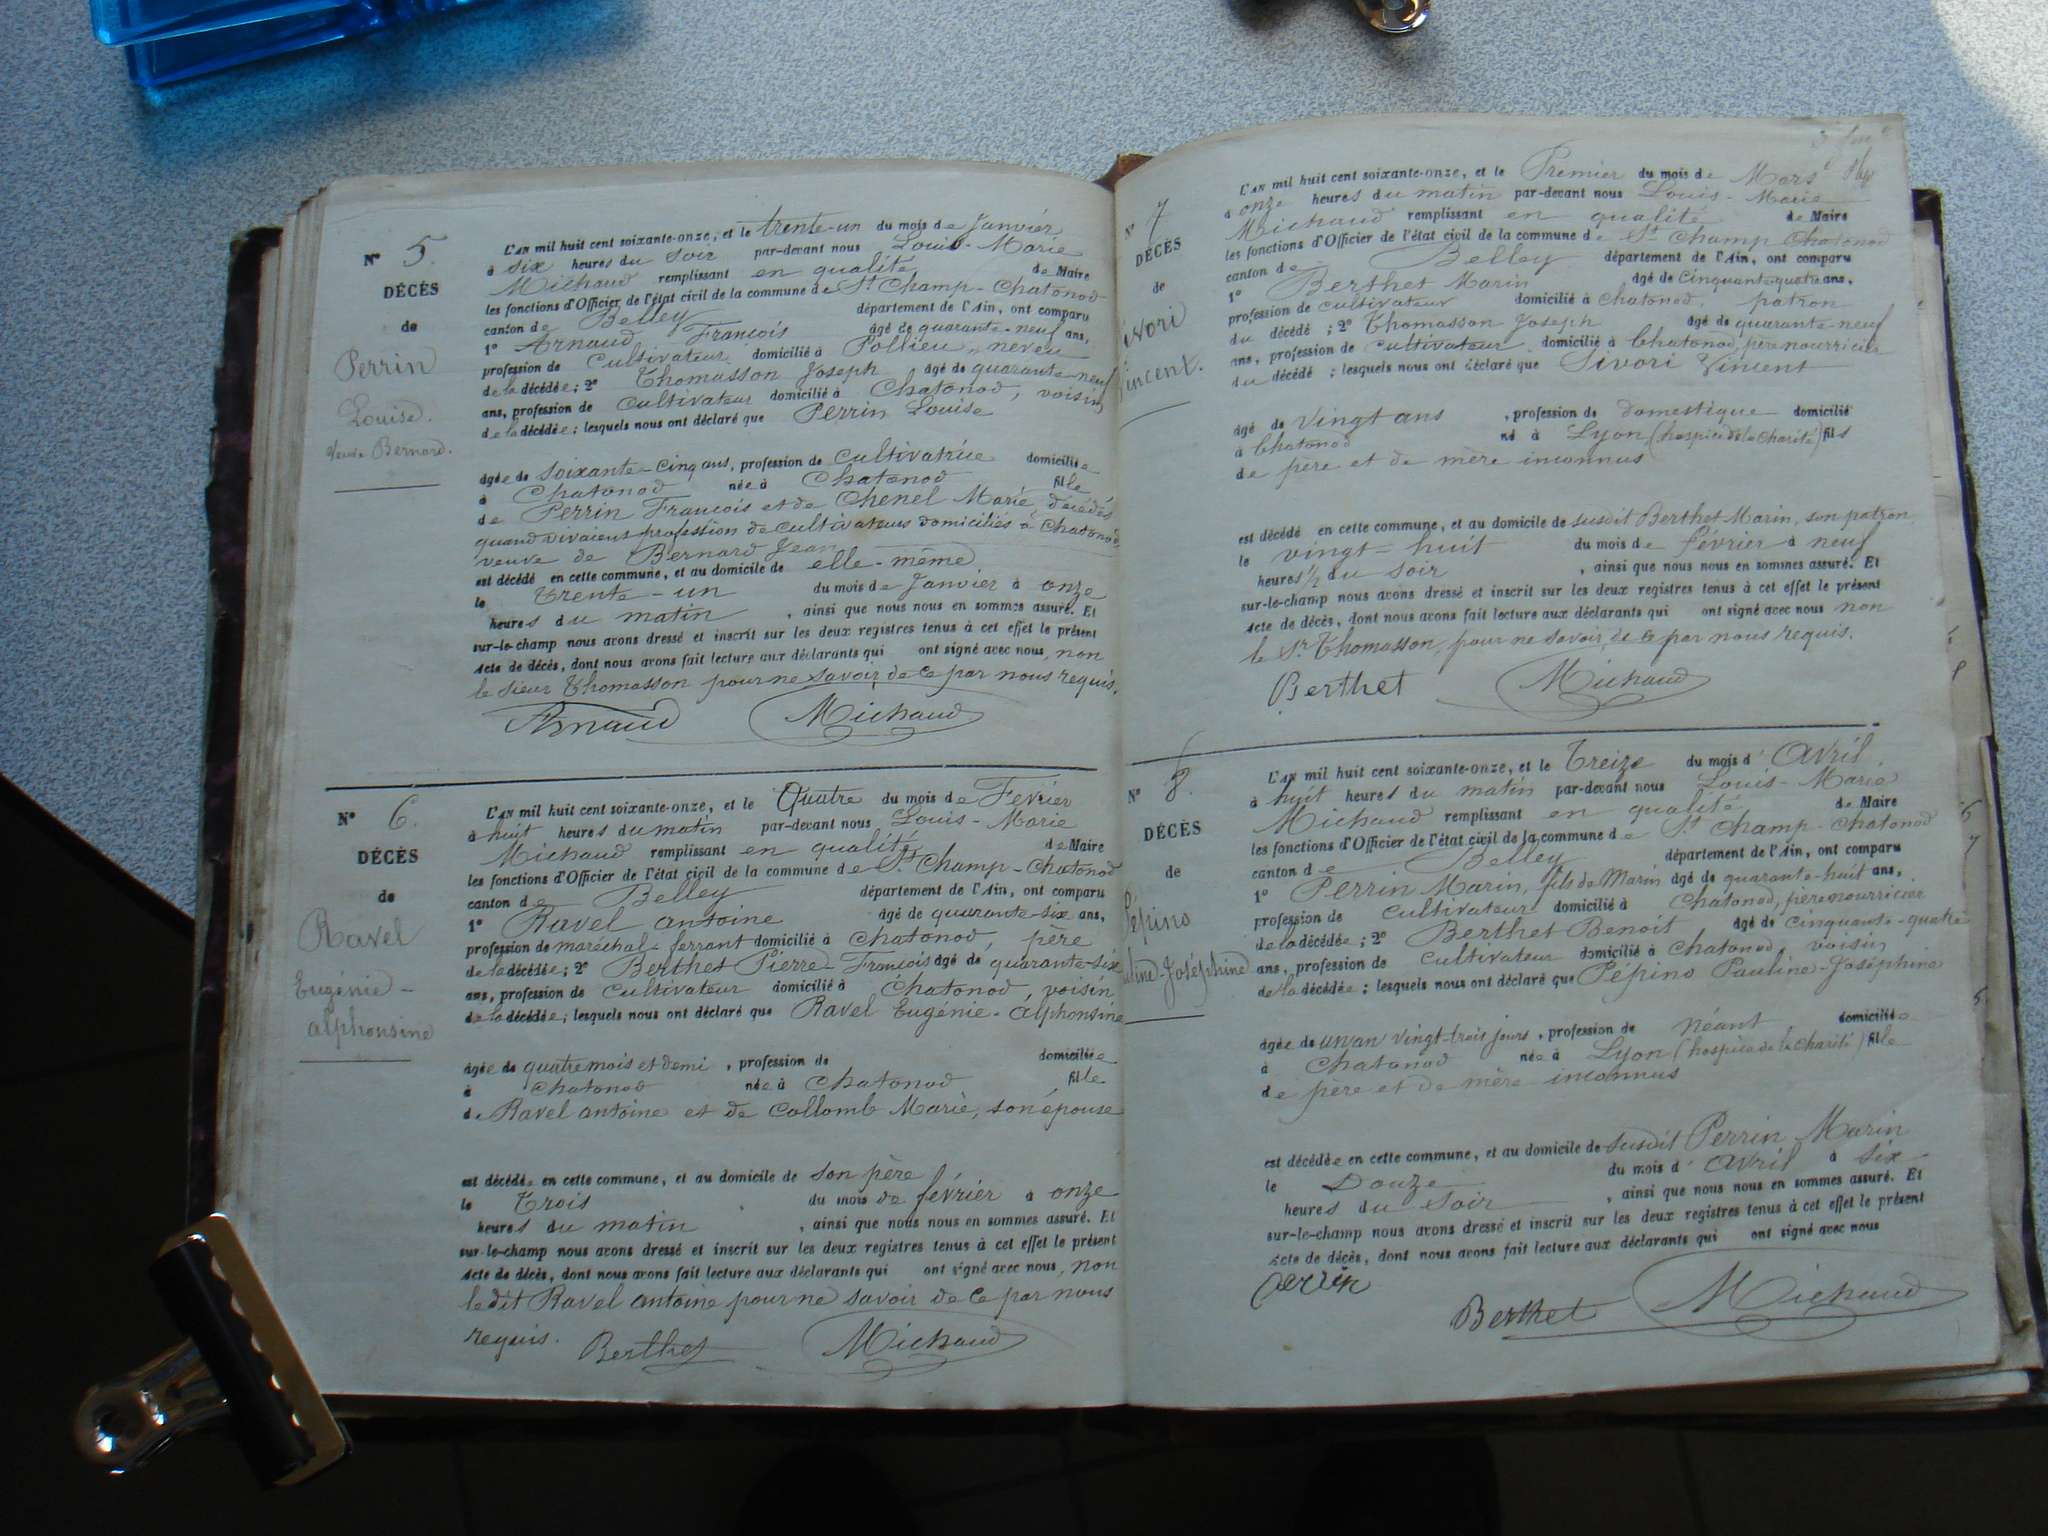 N° 5.
DÉCÈS
de
Perrin
Louise.
veuve Bernard.
L'AN mil huit cent soixante-onze, et le trente-un du mois de Janvier
à six heures du soir par-devant nous Louis-Marie
Michaud remplissant en qualité de Maire
les fonctions d'Officier de l'état civil de la commune de St Champ-Chatonod
canton de Belley département de l'Ain, ont comparu
1° Arnaud François âgé de quarante-neuf ans,
profession de cultivateur domicilié à Pollieu, neveu
de la décédée; 2° Thomasson Joseph âgé de quarante-neuf
ans, profession de cultivateur domicilié à Chatonod, voisin
de la décédée; lesquels nous ont déclaré que Perrin Louise
âgée de soixante-cinq ans, profession de cultivatrice domiciliée
à Chatonod née à Chatonod fille
de Perrin François et de Chenel Marie, décédés
quand vivaient profession de cultivateurs domiciliés à Chatonod
veuve de Bernard Jean
est décédé en cette commune, et au domicile de elle-même
le trente-un du mois de Janvier à onze
heures du matin, ainsi que nous nous en sommes assuré. Et
sur-le-champ nous avons dressé et inscrit sur les deux registres tenus à cet effet le présent
acte de décès, dont nous avons fait lecture aux déclarants qui ont signé avec nous, non
le sieur Thomasson pour ne savoir, de ce par nous requis.
Arnaud Michaud
N° 6.
DÉCÈS
de
Ravel
Eugénie-
alphonsine
L'AN mil huit cent soixante-onze, et le Quatre du mois de Fevrier
à huit heures du matin par-devant nous Louis-Marie
Michaud remplissant en qualité de Maire
les fonctions d'Officier de l'état civil de la commune de St Champ-Chatonod
canton de Belley département de l'Ain, ont comparu
1° Ravel antoine âgé de quarante-six ans,
profession de maréchal-ferrant domicilié à Chatonod, père
de la décédée; 2° Berthet Pierre-François âgé de quarante-six
ans, profession de cultivateur domicilié à Chatonod, voisin
de la décédée; lesquels nous ont déclaré que Ravel Eugénie-alphonsine
âgée de quatre mois et demi, profession de domiciliée
à Chatonod née à Chatonod fille
de Ravel antoine et de Collomb Marie, son épouse
est décédée en cette commune, et au domicile de son père
le trois du mois de février à onze
heures du matin, ainsi que nous nous en sommes assuré. Et
sur-le-champ nous avons dressé et inscrit sur les deux registres tenus à cet effet le présent
acte de décès, dont nous avons fait lecture aux déclarants qui ont signé avec nous, non
le dit Ravel antoine pour ne savoir de ce par nous
requis. Berthet Michaud
N° 7
DÉCÈS
de
ivori
incent.
L'AN mil huit cent soixante-onze, et le Premier du mois de Mars
à onze heures du matin par-devant nous Louis-Marie
Michaud remplissant en qualité de Maire
les fonctions d'Officier de l'état civil de la commune de St Champ Chatonod
canton de Belley département de l'Ain, ont comparu
1° Berthet Marin âgé de cinquante-quatre ans,
profession de cultivateur domicilié à Chatonod, patron
du décédé; 2° Thomasson Joseph âgé de quarante-neuf
ans, profession de cultivateur domicilié à Chatonod, père nourricier
du décédé; lesquels nous ont déclaré que Sivori Vincent
âgé de vingt ans, profession de domestique domicilié
à Chatonod né à Lyon (hospice de la Charité) fils
de père et de mère inconnus
est décédé en cette commune, et au domicile de susdit Berthet Marin, son patron
le vingt-huit du mois de février à neuf
heures 1/2 du soir, ainsi que nous nous en sommes assuré. Et
sur-le-champ nous avons dressé et inscrit sur les deux registres tenus à cet effet le présent
acte de décès, dont nous avons fait lecture aux déclarants qui ont signé avec nous non
le Sr Thomasson, pour ne savoir, de ce par nous requis.
Berthet Michaud
N° 8.
DÉCÈS
de
Pépino
uline-Joséphine
L'AN mil huit cent soixante-onze, et le treize du mois d'avril
à huit heures du matin par-devant nous Louis-Marie
Michaud remplissant en qualité de Maire
les fonctions d'Officier de l'état civil de la commune de St Champ-Chatonod
canton de Belley département de l'Ain, ont comparu
1° Perrin Marin, fils de Marin âgé de quarante-huit ans,
profession de cultivateur domicilié à Chatonod, père nourricier
de la décédée; 2° Berthet Benoit âgé de cinquante-quatre
ans, profession de cultivateur domicilié à Chatonod, voisin
de la décédée; lesquels nous ont déclaré que Pépino Pauline-Joséphine
âgée de un an vingt-trois jours, profession de néant domiciliée
à Chatonod née à Lyon (hospice de la Charité) fille
de père et de mère inconnus
est décédée en cette commune, et au domicile de susdit Perrin Marin
le Douze du mois d'avril à six
heures du soir, ainsi que nous nous en sommes assuré. Et
sur-le-champ nous avons dressé et inscrit sur les deux registres tenus à cet effet le présent
acte de décès, dont nous avons fait lecture aux déclarants qui ont signé avec nous
Perrin Berthet Michaud